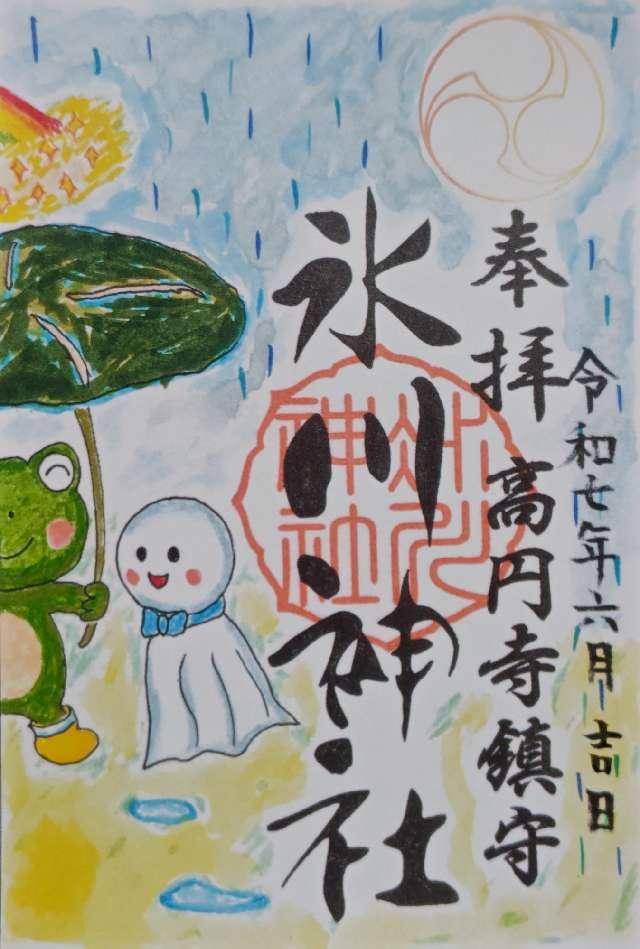 令和七年六月吉日
奉拝 高円寺鎮守
氷川神社
氷川
神社